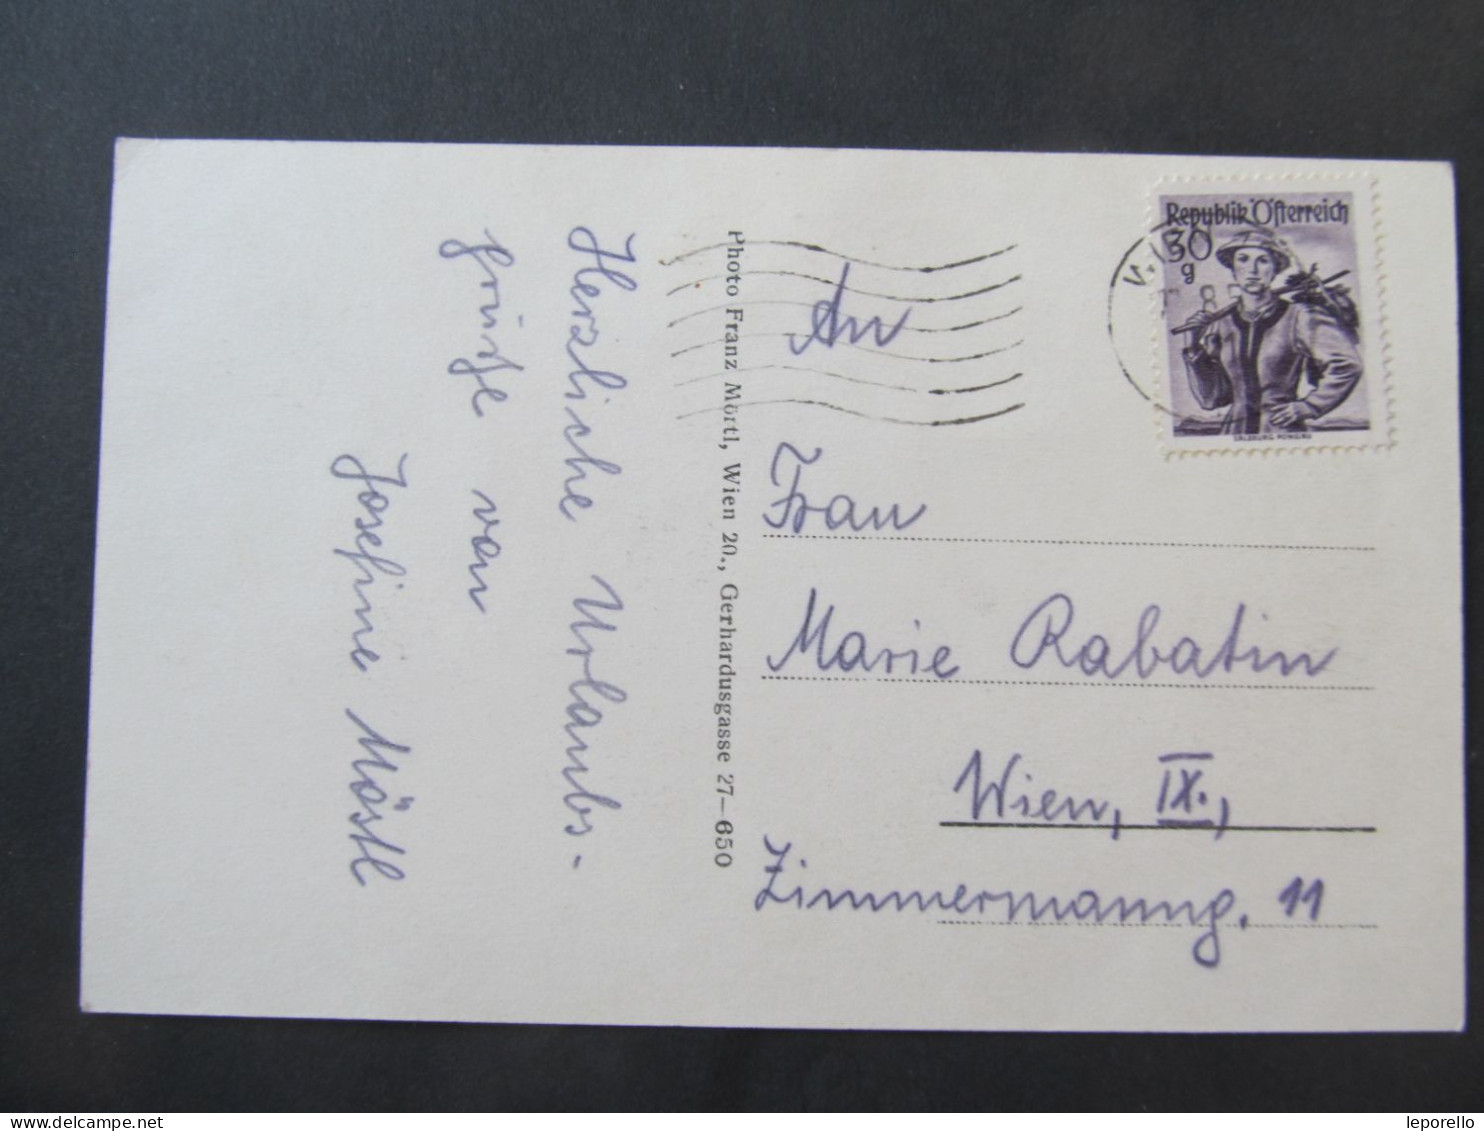 Herzliche Urlaubs-
grüße von
Josefine Möstl
Photo Franz Mörtl, Wien 20., Gerhardusgasse 27—650
Republik Österreich
30
g
SALZBURG, PONGAU
An
Frau
Marie Rabatin
Wien, IX.,
Zimmermanng. 11
Delcampe.net
leporello